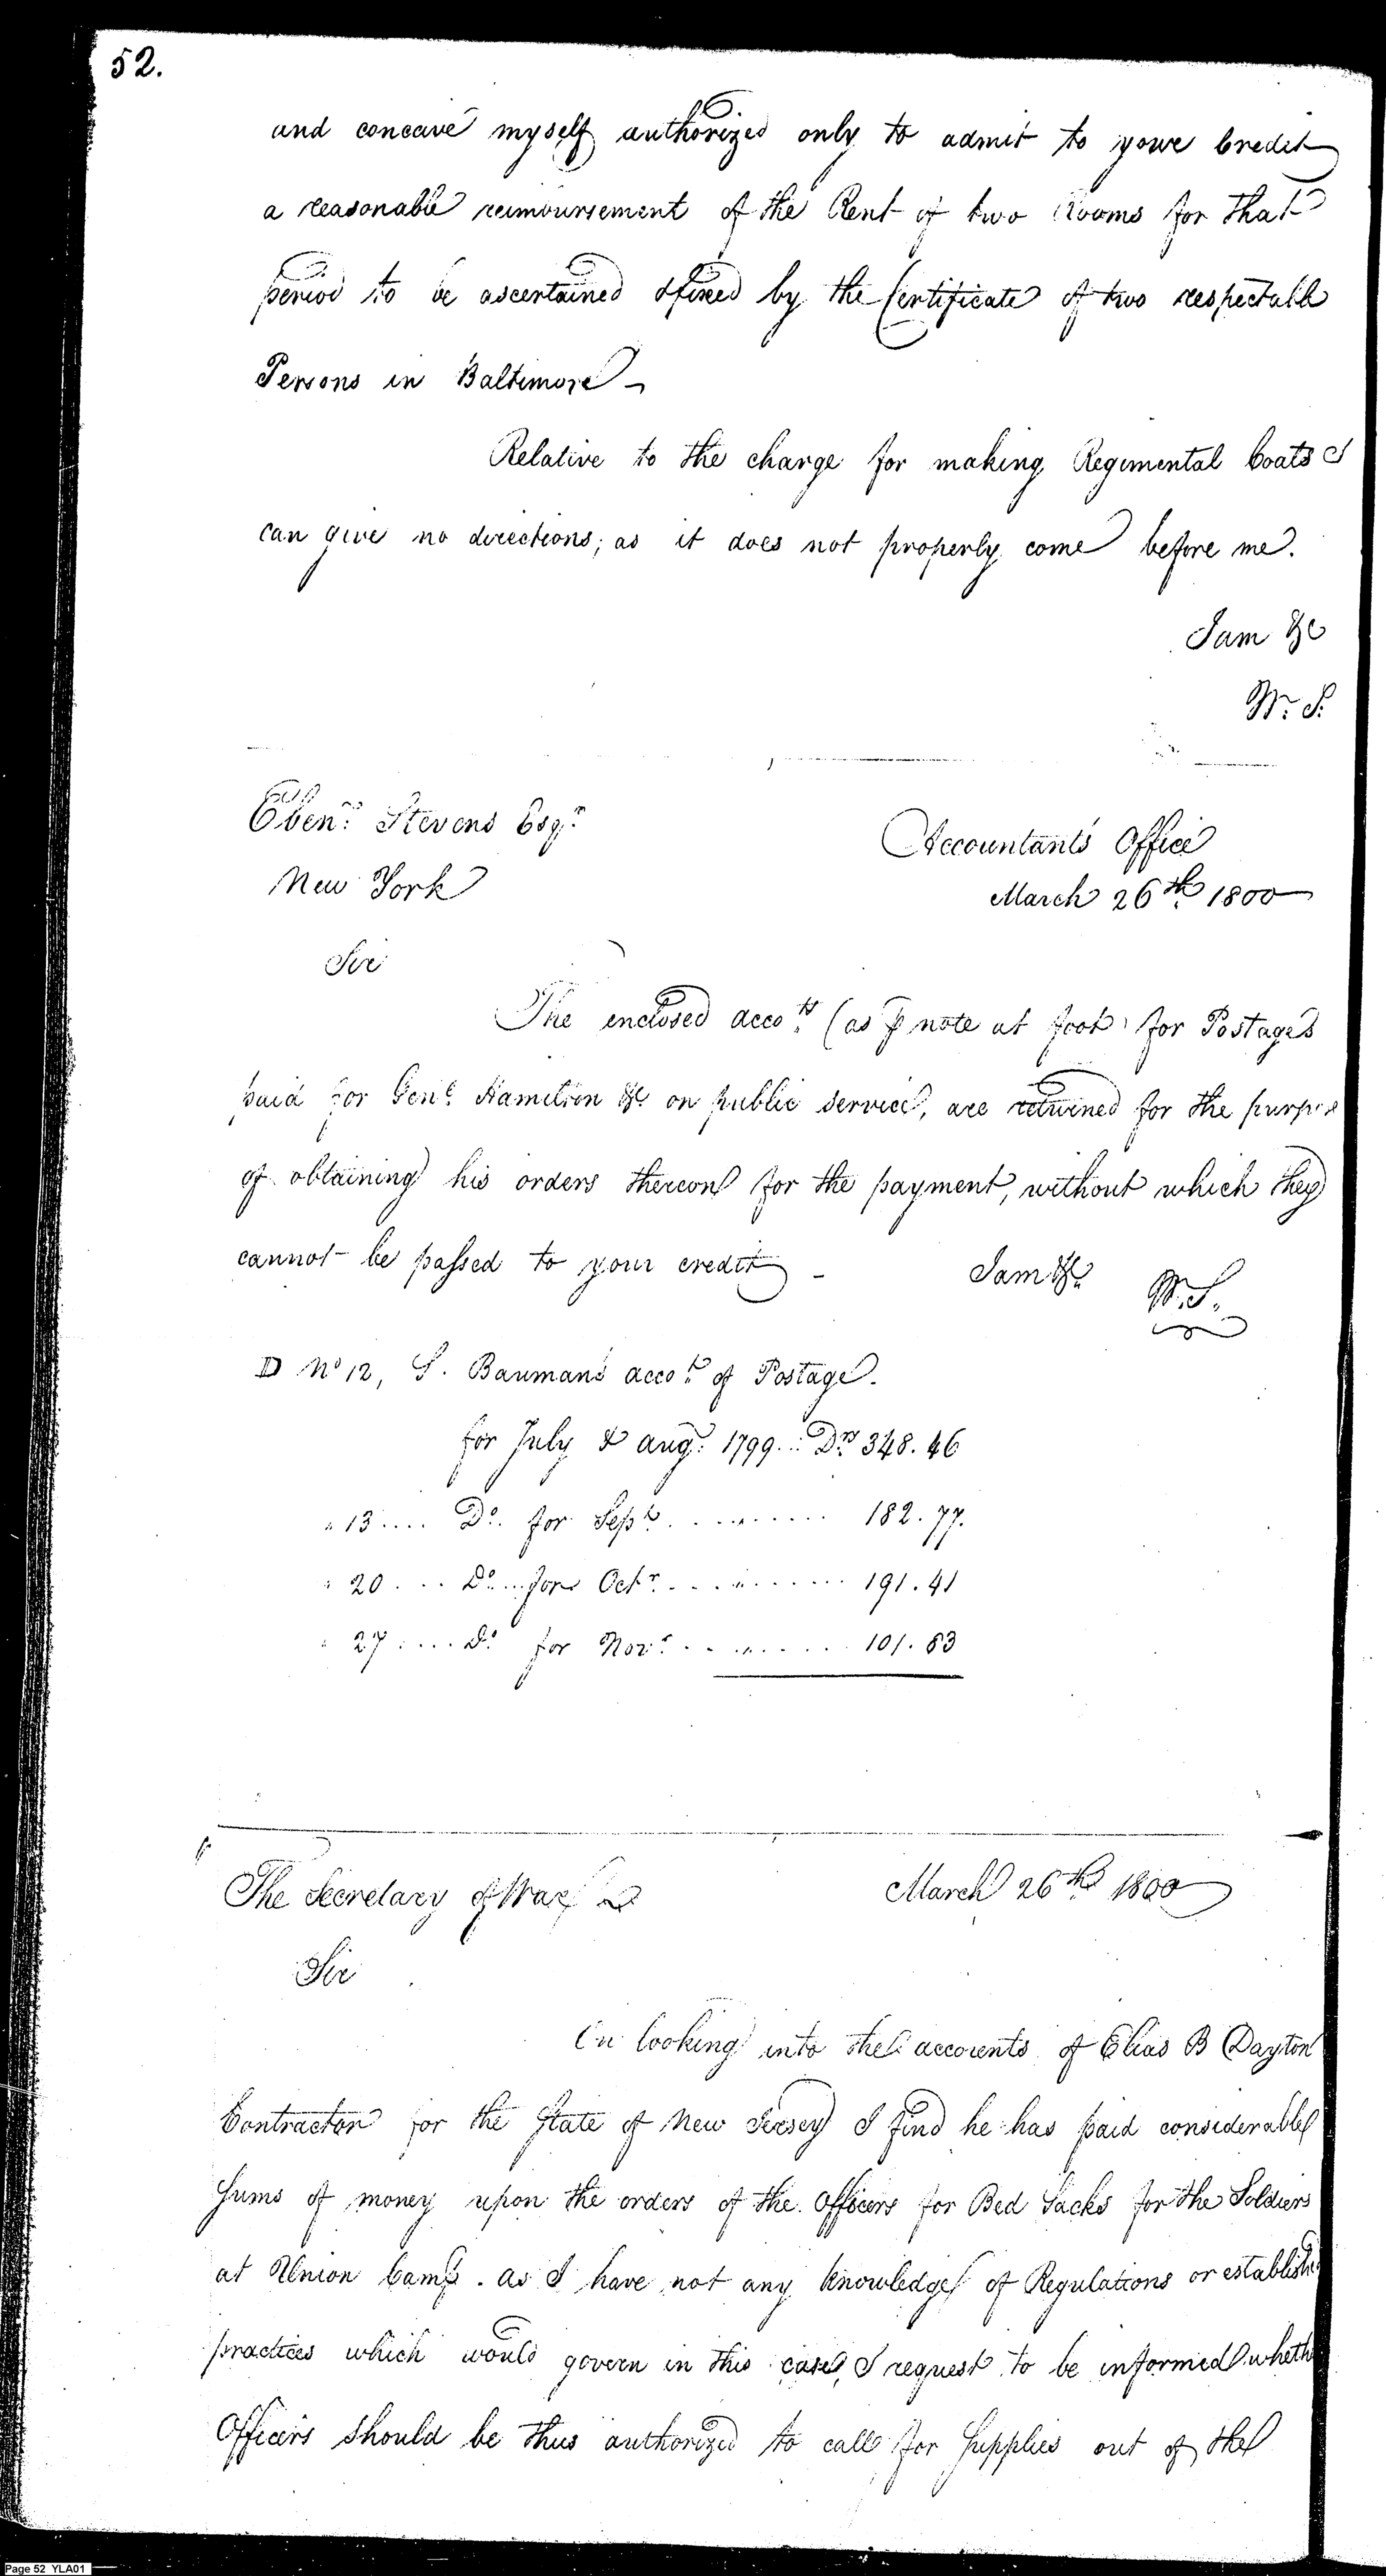 52.
and conceive myself authorized only to admit to your Credit
a reasonable reimbursement of the Rent of two Rooms for that
period to be ascertained & fixed by the Certificate of two respectable
Persons in Baltimore –
Relative to the charge for making Regimental Coats I
can give no directions; as it does not properly come before me.
I am &c
W. S.
Eben.r Stevens Esq.r
New York
Accountants Office
March 26th 1800
Sir
The enclosed acco.ts (as ⅌ note at foot) for Postages
paid for Gen.l Hamilton &c. on public service, are returned for the purpose
of obtaining his orders thereon for the payment, without which they
cannot be passed to your credit –
I am &c.
W. S.
D No 12, S. Bauman's acco.t of Postage.
for July & Aug.t 1799 .. D.rs 348.46
" 13 .... Do. for Sept.r ........ 182.77.
" 20 .... Do... for Oct.r ........ 191.41
" 27 .... Do. for Nov.r ........ 101.83
The Secretary of War
March 26th 1800
Sir
On looking into the accounts of Elias B Dayton
Contractor for the State of New Jersey I find he has paid considerable
Sums of money upon the orders of the Officers for Bed Sacks for the Soldiers
at Union Camp. as I have not any knowledge of Regulations or establishe
practices which would govern in this case, I request to be informed wheth
Officers should be thus authorized to call for Supplies out of the
Page 52 YLA01